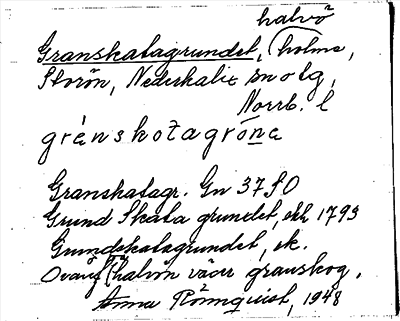 halvö
Granskatagrundet, (holme,
Storön, Nederkalix sn o tg,
Norrb. l
grànskotagrone
Granskatagr. Gn 37 SO
Grund Skata grundet, ekk 1793
Grundskatagrundet, ek.
Ovanf halvön växer granskog.
Anna Rönnquist, 1948